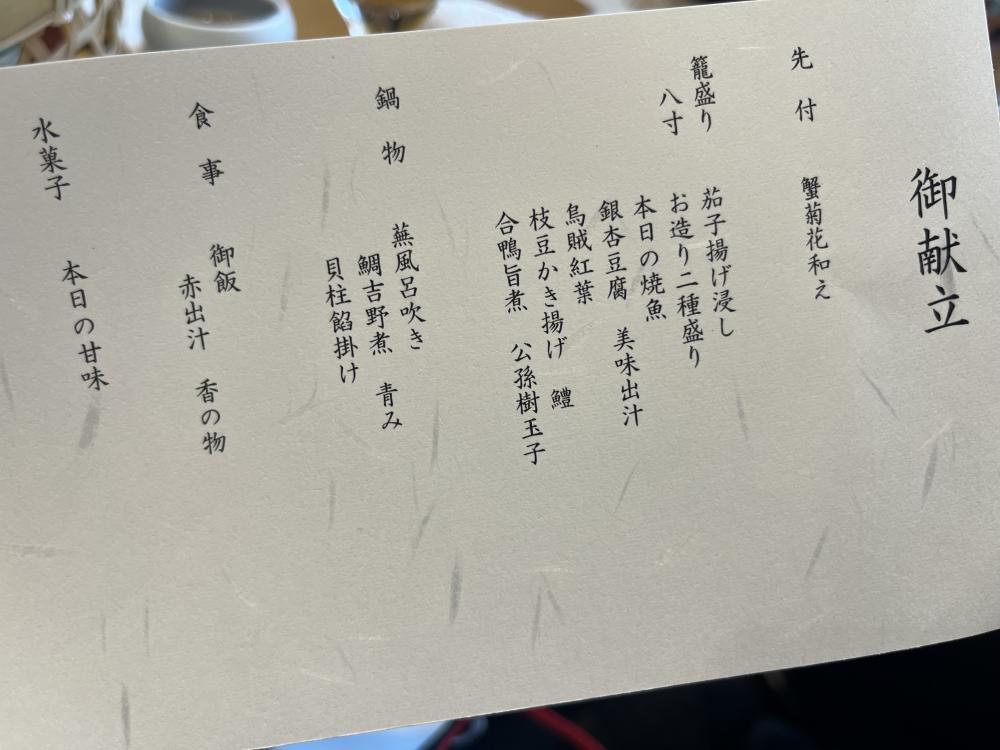 御献立
先付
蟹菊花和え
籠盛り
八寸
茄子揚げ浸し
お造り二種盛り
本日の焼魚
銀杏豆腐 美味出汁
烏賊紅葉 鱧
枝豆かき揚げ
合鴨旨煮 公孫樹玉子
鍋物
蕪風呂吹き
鯛吉野煮 青み
貝柱餡掛け
食事
御飯
赤出汁 香の物
水菓子
本日の甘味